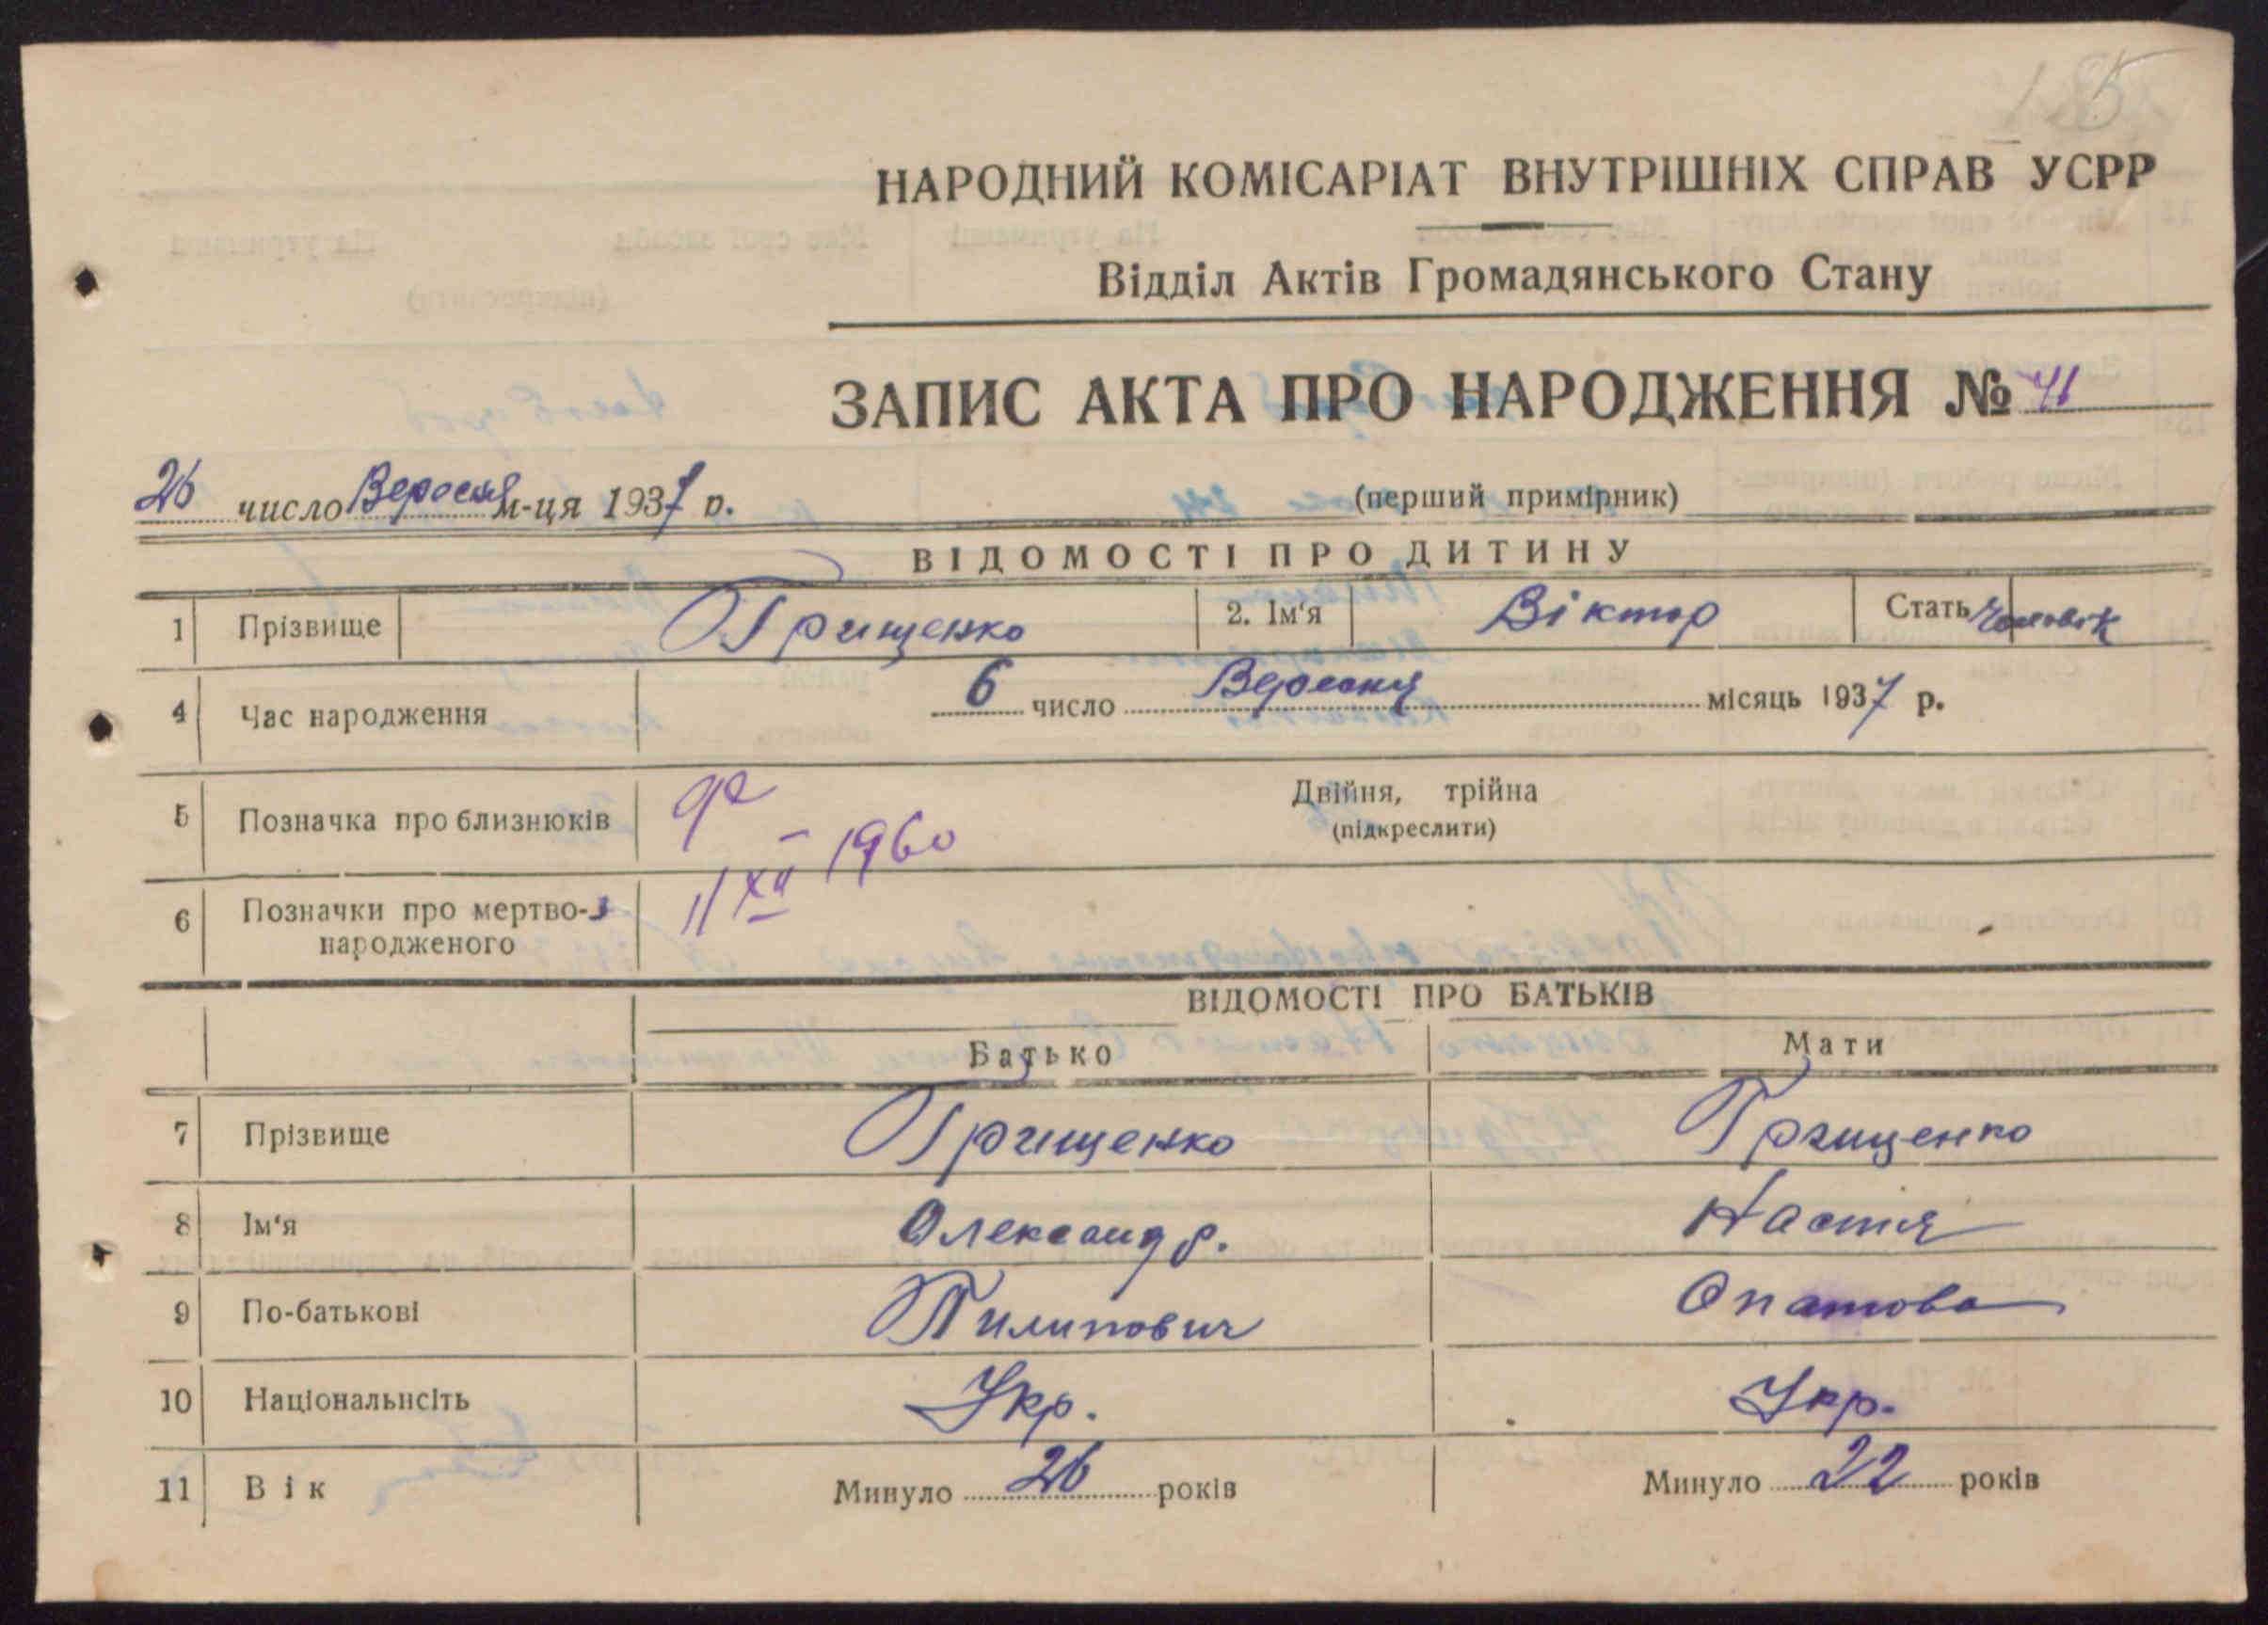 15
НАРОДНИЙ КОМІСАРІАТ ВНУТРІШНІХ СПРАВ УСРР
Відділ Актів Громадянського Стану
ЗАПИС АКТА ПРО НАРОДЖЕННЯ № 41
26 число Вересня м-ця 1937 р.
(перший примірник)
ВІДОМОСТІ ПРО ДИТИНУ
1 Прізвище Грищенко 2. Ім'я Віктор Стать Чоловік
4 Час народження 6 число Вересня місяць 1937 р.
5 Позначка про близнюків Двійня, трійна
(підкреслити)
11 XII 1960
6 Позначки про мертво-
народженого
ВІДОМОСТІ ПРО БАТЬКІВ
Батько Мати
7 Прізвище Грищенко Грищенко
8 Ім'я Олександр. Настя
9 По-батькові Пилипович Опатова
10 Національнсіть Укр. Укр.
11 Вік Минуло 26 років Минуло 22 років